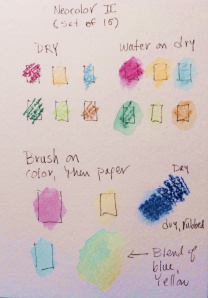 Neocolor II
(set of 15)
DRY
Water on dry
Brush on
color, then paper
DRY
dry, rubbed
← Blend of
blue,
yellow